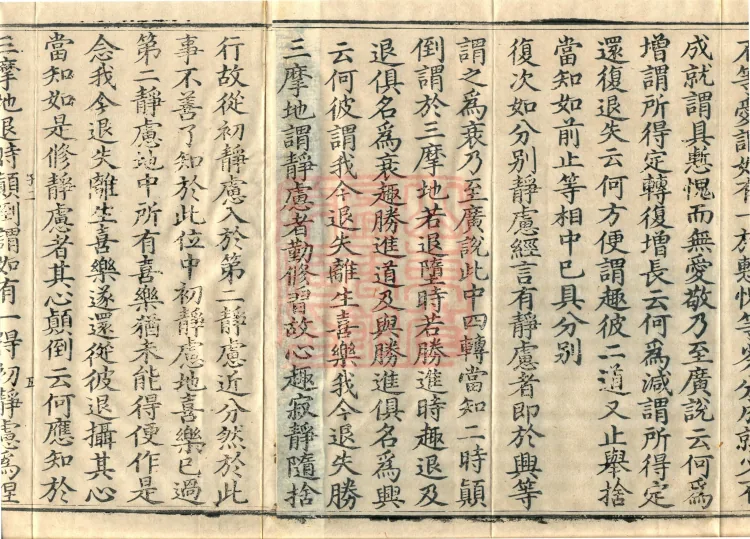 成就謂具慙愧而無愛敬乃至廣說云何爲
增謂所得定轉復增長云何爲減謂所得定
還復退失云何方便謂趣彼二道又止舉捨
當知如前止等相中已具分別
復次如分別靜慮經言有靜慮者即於興等
謂之爲衰乃至廣說此中四轉當知二時顛
倒謂於三摩地若退墮時若勝進時趣退及
退俱名爲衰趣勝進道及與勝進俱名爲興
云何彼謂我今退失離生喜樂我今退失勝
三摩地謂靜慮者勤修習故心趣寂靜隨捨
行故從初靜慮入於第二靜慮近分然於此
事不善了知於此位中初靜慮地喜樂已過
第二靜慮地中所有喜樂猶未能得便作是
念我今退失離生喜樂遂還從彼退攝其心
當知如是修靜慮者其心顛倒云何應知於
三摩地退時顛倒謂如有一得初靜慮爲